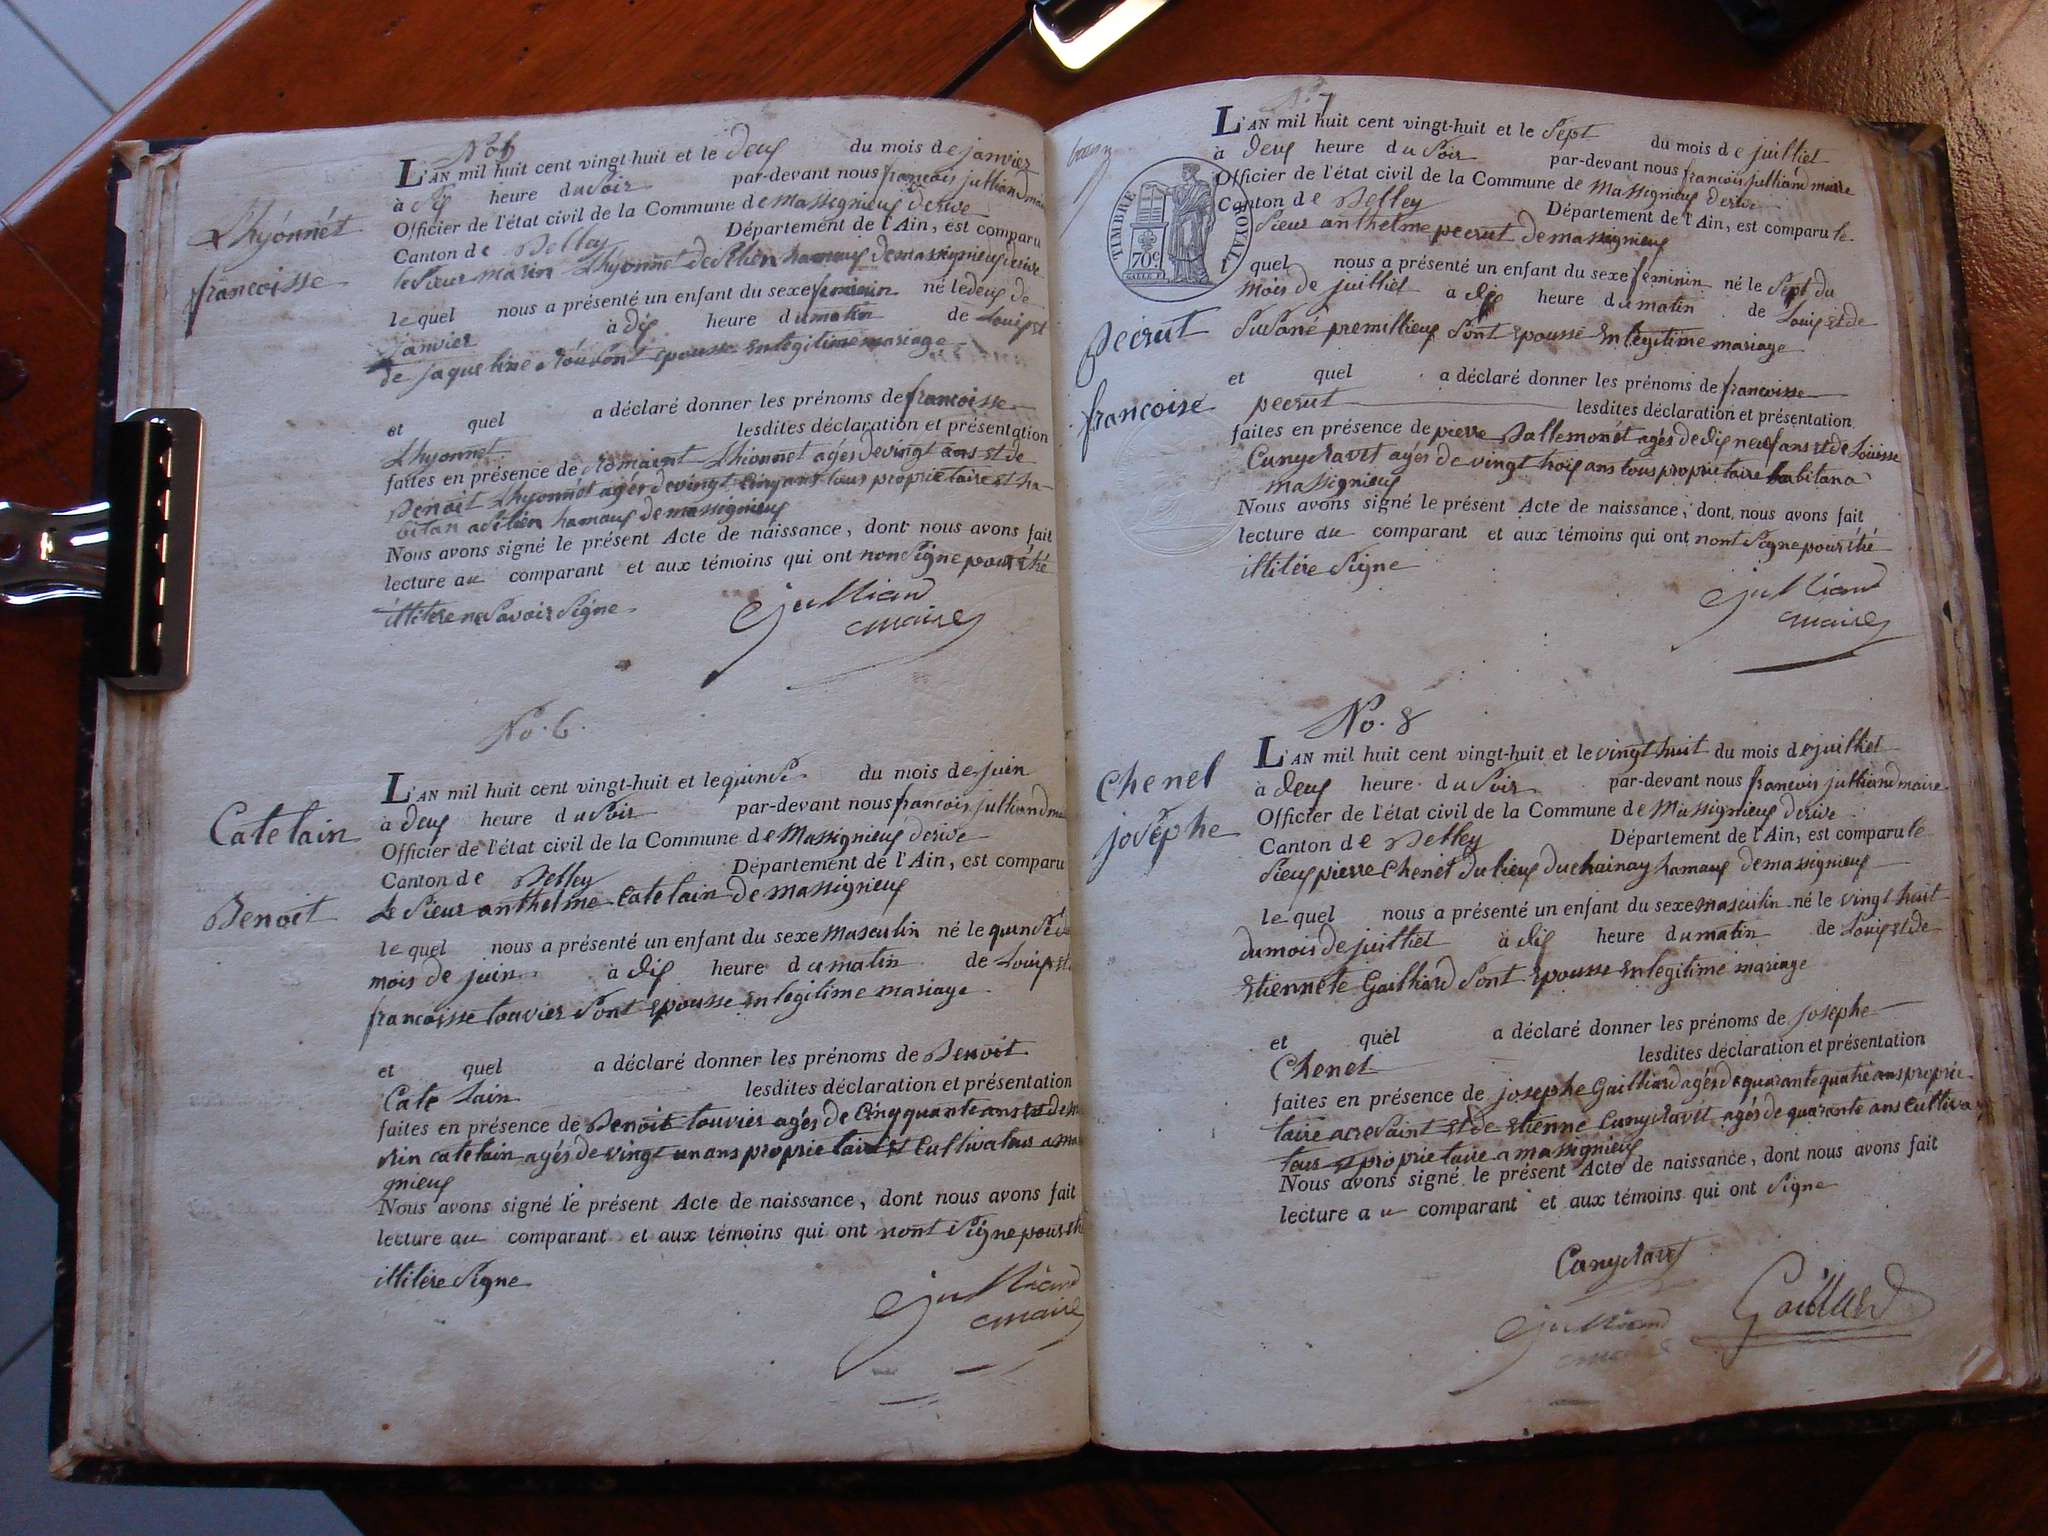 L'AN mil huit cent vingt-huit et le deux du mois de janvier
à dix heure du soir par-devant nous francois julliand
Officier de l'état civil de la Commune de massignieux derive
Canton de Belley Département de l'Ain, est comparu
le sieur marin Lhyonnet hamaux de massignieux derive
le quel nous a présenté un enfant du sexe feminin né le deux de
janvier à dix heure du matin de Louis et
de jaqueline sont epousse en legitime mariage
et quel a déclaré donner les prénoms de francoisse
Lhyonnet lesdites déclaration et présentation
faites en présence de Lhionnet agés de vingt ans et de
Benoit Lhyonnet agés de vingt cinq ans tous proprietaire et ha-
bitan hamaux de massignieux
Nous avons signé le présent Acte de naissance, dont nous avons fait
lecture au comparant et aux témoins qui ont non signe pour
illitère ne savoir signe
julliand
maire
Lhyonnet
francoisse
No. 6.
L'AN mil huit cent vingt-huit et le quinse du mois de juin
à deux heure du soir par-devant nous francois julliand
Officier de l'état civil de la Commune de Massignieux derive
Canton de Belley Département de l'Ain, est comparu
Le sieur anthelme Catelain de massignieux
le quel nous a présenté un enfant du sexe masculin né le quinse
mois de juin à dix heure du matin de Louis
francoisse touvier sont epousse en legitime mariage
et quel a déclaré donner les prénoms de Benoit
Cate lain lesdites déclaration et présentation
faites en présence de Benoit touvier agés de cinquante ans et de
rin catelain agés de vingt un ans proprietaire et cultivateur a ma
gnieux
Nous avons signé le présent Acte de naissance, dont nous avons fait
lecture au comparant et aux témoins qui ont nont signe pour
illitère signe
julliand
maire
Catelain
Benoit
No 7
L'AN mil huit cent vingt-huit et le sept du mois de juilliet
à deux heure du soir par-devant nous francois julliand maire
Officier de l'état civil de la Commune de massignieux derive
Canton de Belley Département de l'Ain, est comparu le
sieur anthelme pecrut de massignieux
l quel nous a présenté un enfant du sexe feminin né le sept du
mois de juilliet à dix heure du matin de Louis et de
susane premillieux sont epousse en legitime mariage
et quel a déclaré donner les prénoms de francoisse
pecrut lesdites déclaration et présentation
faites en présence de pierre Ballemonet agés de dix neuf ans et de Louisse
Cunyravet agés de vingt trois ans tous proprietaire habitan a
massignieux
Nous avons signé le présent Acte de naissance, dont nous avons fait
lecture au comparant et aux témoins qui ont nont signe pour
illitère signe
julliand
maire
TIMBRE ROYAL
70c
Pecrut
francoise
No. 8
L'AN mil huit cent vingt-huit et le vingt huit du mois de juilliet
à deux heure du soir par-devant nous francois julliand maire
Officier de l'état civil de la Commune de Massignieux derive
Canton de Belley Département de l'Ain, est comparu le
sieur pierre Chenet du lieux hamaux de massignieux
le quel nous a présenté un enfant du sexe masculin né le vingt huit
du mois de juilliet à dix heure du matin de Louis et de
Etiennete Gailliard sont epousse en legitime mariage
et quel a déclaré donner les prénoms de josephe
Chenet lesdites déclaration et présentation
faites en présence de josephe Gailliard agés de quarante quatre ans proprie-
taire a et de Etienne Cunyravet agés de quarante ans cultiva
teur et proprietaire a massignieux
Nous avons signé le présent Acte de naissance, dont nous avons fait
lecture au comparant et aux témoins qui ont signe
Cunyravet
julliand Gaillard
maire
Chenet
josephe